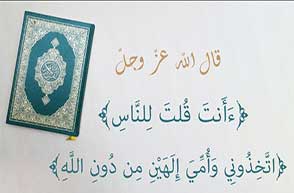 قال الله عزّ وجلّ
﴿ءَأَنتَ قُلتَ لِلنَّاسِ﴾
﴿اتَّخِذُونِي وَأُمِّيَ إِلَهَيْنِ مِن دُونِ اللَّهِ﴾